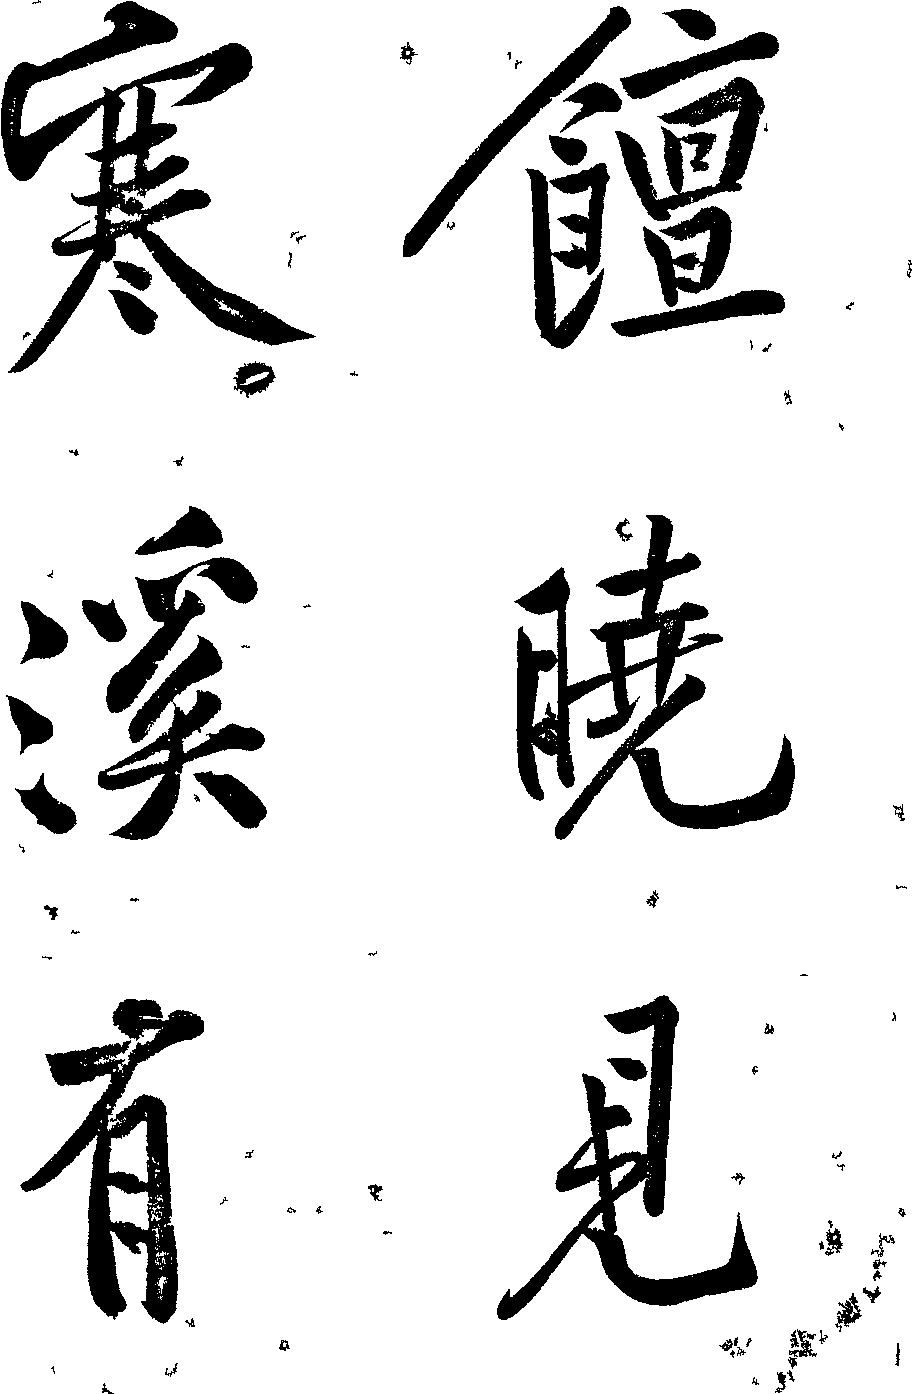 饘曉見
寒溪有